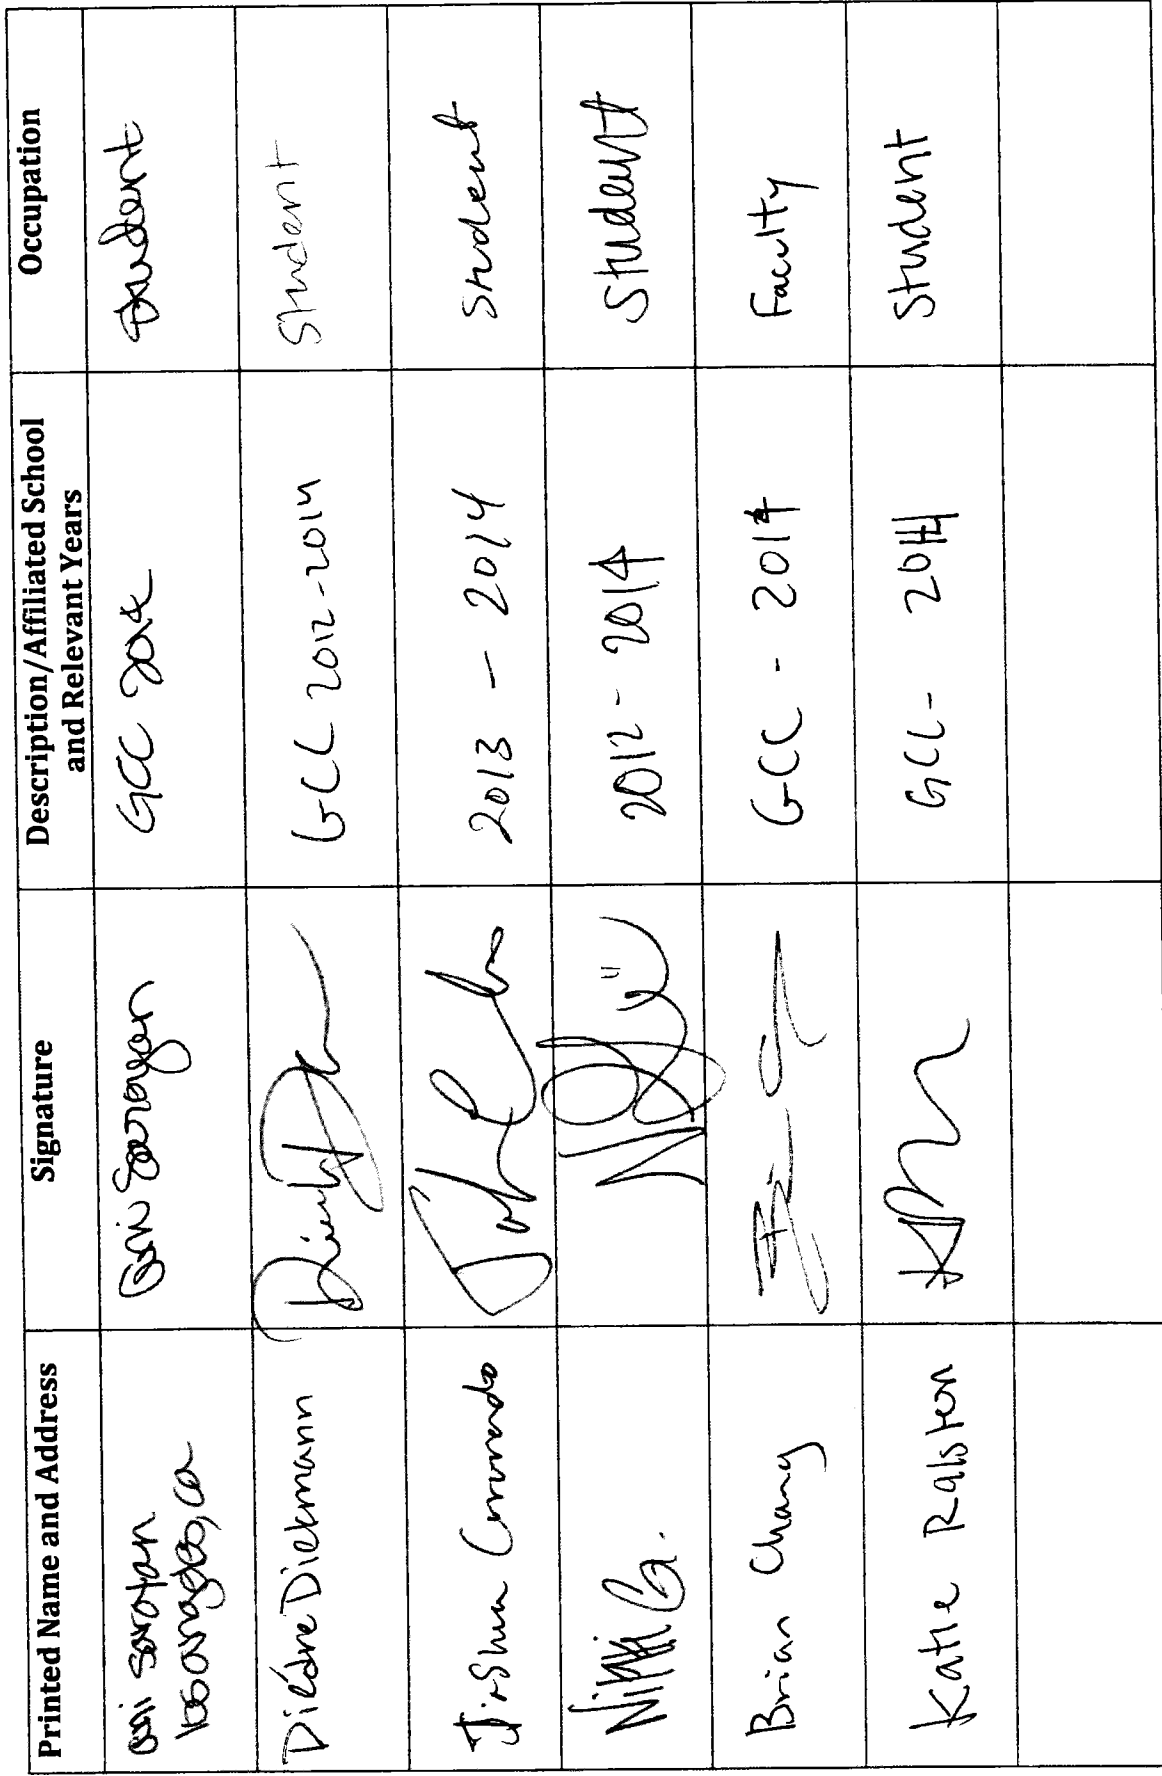 Printed Name and Address Signature Description/Affiliated School and Relevant Years Occupation
losangeles, ca GCC 2014 Student
Diédre Diekmann GCC 2012-2014 Student
Joshua 2013 - 2014 Student
Nikki G. 2012 - 2014 Student
Brian Chang GCC - 2014 Faculty
Katie Ralston GCC - 2014 Student